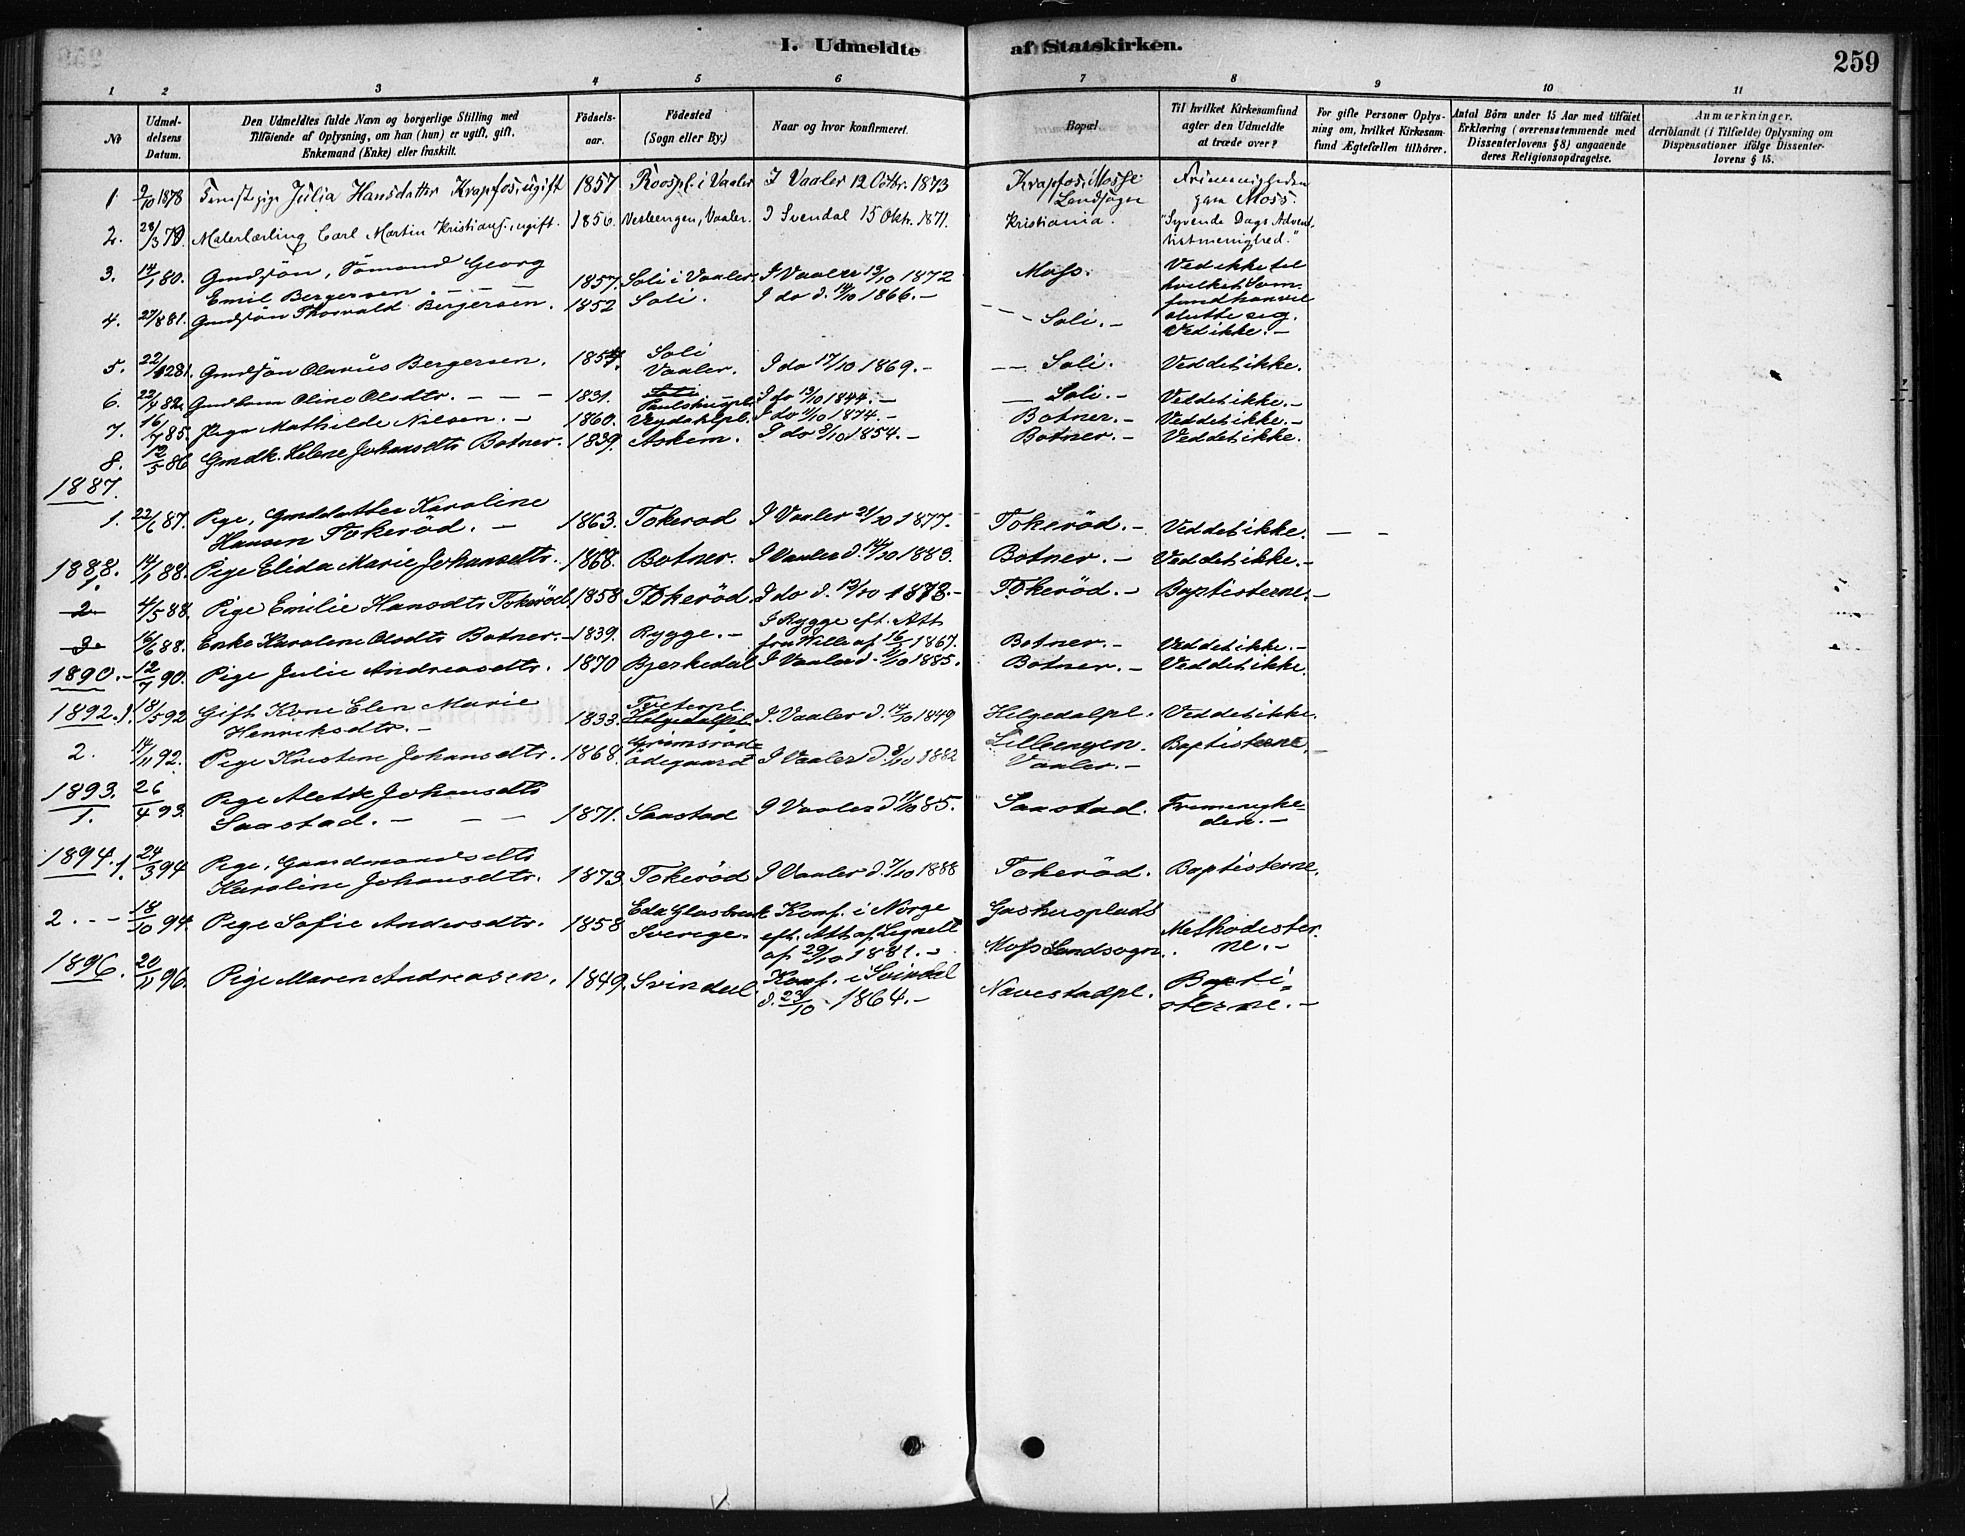 I. Udmeldte af Statskirken. 259
1 2 3 4 5 6 7 8 9 10 11
No | Udmeldelsens Datum. | Den Udmeldtes fulde Navn og borgerlige Stilling med Tilföiende af Oplysning, om han (hun) er ugift, gift, Enkemand (Enke) eller fraskilt. | Födselsaar. | Födested (Sogn eller By.) | Naar og hvor konfirmeret. | Bopæl. | Til hvilket Kirkesamfund agter den Udmeldte at træde over? | For gifte Personer Oplysning om, hvilket Kirkesamfund Ægtefællen tilhörer. | Antal Börn under 15 Aar med tilföiet Erklæring (overensstemmende med Dissenterlovens § 8) angaaende deres Religionsopdragelse. | Anmærkninger, deriblandt (i Tilfælde) Oplysning om Dispensationer ifölge Dissenterlovens § 15.
1 9/10 1878 Tjenestepige Julia Hansdatter Krapfos, ugift 1857 Roospl. i Vaaler I Vaaler 12 Octbr. 1873 Krapfos, Mosse Landsogn Frimenigheden Moss.
2. 28/3 79 Malerlærling Carl Martin Kristians., ugift. 1856. Vesteengen, Vaaler. I Svendal 15 Oktr. 1871. Kristiania. "Syvende Dags Adventistmenighed."
3. 14/1 80. Gmdsön, Tömand Georg Emil Bergersen. – – – 1857. Soli i Vaaler. I Vaaler 13/10 1872 Moss. Ved ikke til hvilket Samfund han vil slutte sig.
4. 27/8 81. Gmdsön Thorvald Bergersen. 1852 Soli. I do d. 14/10 1866. – – – Soli. – Ved ikke. –
5. 22/12 81. Gmdsön Olavus Bergersen. 1854. Soli Vaaler. I do 17/10 1869. – – – Soli. Ved det ikke.
6. 22/9 82. Gmdkone Oline Olsdtr. – – – 1831. Soli Paulshuspl. I do 13/10 1844. – – Soli. – Ved det ikke. –
7. 16/7 85. Pige Mathilde Nilsen. – 1860. Vegdahlpl. I do 11/10 1874. – Botner. – Ved det ikke. –
8. 12/5 86 Gmdk. Helene Johansdtr Botner. 1839. Askim. I do 8/10 1854. – Botner. – Ved det ikke.
1887.
1. 22/6 87. Pige, Gmddatter Karoline Hansen Tokeröd. – 1863. Tokerod I Vaaler 21/10 1877. Tokeröd. – Ved det ikke. – –
1888. 1. 14/1 88. Pige Elida Marie Johansdtr. 1868. Botner. I Vaaler d. 14/10 1883. Botner. – Ved det ikke. –
2 4/5 88. Pige Emilie Hansdtr Tokeröd 1858. Tokeröd I do d. 12/10 1873. – Tokeröd. – Baptisterne. –
3 16/6 88. Enke Karoline Olsdtr Botner. – 1839. Rygge. – I Rygge eft. Att fra Wille af 16/6 1867. Botner. – Ved det ikke. –
1890. – 12/7 90. Pige Julie Andreasdtr. 1870 Bjerkedal I Vaaler d. 11/10 1885. Botner. – Ved det ikke.
1892. 1. 18/5 92 Gift Kone Elen Marie Henriksdtr. – 1833. Tveterpl. Helgedalpl. I Vaaler d. 14/10 1849 Helgedalpl. Ved det ikke.
2. 14/11 92. Pige Kristine Johansdtr. 1868. Grimsröd-ödegaard I Vaaler d. 8/10 1882 Lilleengen. Vaaler. – Baptisterne. –
1893. 1. 26/4 93. Pige Alette Johansdtr Saastad. – – – 1871. Saastad I Vaaler d 11/10 85. Saastad. Frimenigheden. –
1894. 1. 24/3 94 Pige, Gaardmandsdtr Karoline Johansdtr. 1873. Tokeröd I Vaaler d. 7/10 1888 Tokeröd. Baptisterne.
2. . – 18/10 94. Pige Sofie Andersdtr. 1858 Eda Glasbruk Sverige. Konf. i Norge eft. Att af Lignell af 29/10 1881. – Gashusplads Moss Landsogn. Methodisterne. –
1896. 20/11 96. Pige Maren Andreasen. 1849. Svindal. Konf. i Svindal d. 23/10 1864. – Navestadpl. Baptisterne. –